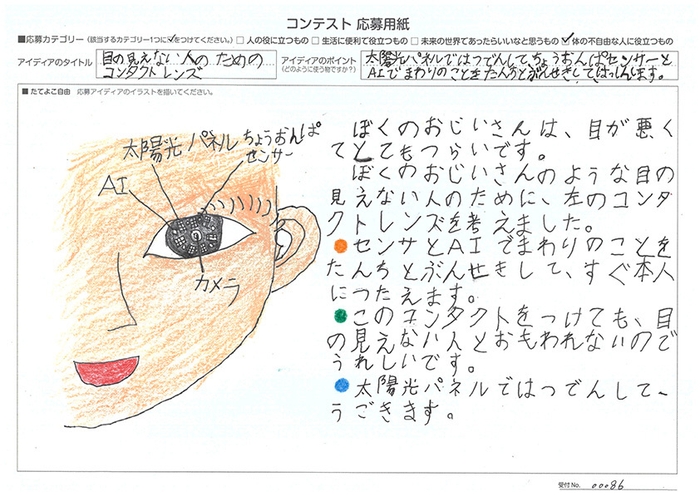 コンテスト 応募用紙
■応募カテゴリー（該当するカテゴリー1つに✓をつけてください。） □ 人の役に立つもの □ 生活に便利で役立つもの □ 未来の世界であったらいいなと思うもの ☑ 体の不自由な人に役立つもの
アイディアのタイトル
目の見えない人のための
コンタクトレンズ
アイディアのポイント
（どのように使う物ですか？）
太陽光パネルではつでんして、ちょうおんぱセンサーと
AIでまわりのことをたんちとぶんせきしてはっしんします。
■たてよこ自由 応募アイディアのイラストを描いてください。
太陽光 パネル
ちょうおんぱ
センサー
AI
カメラ
ぼくのおじいさんは、目が悪く
てとてもつらいです。
ぼくのおじいさんのような目の
見えない人のために、左のコンタ
クトレンズを考えました。
●センサとAIでまわりのことを
たんちとぶんせきして、すぐ本人
につたえます。
●このコンタクトをつけても、目
の見えない人とおもわれないので
うれしいです。
●太陽光パネルではつでんして、
うごきます。
受付No. 00086